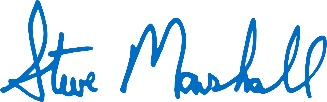 Steve Marshall